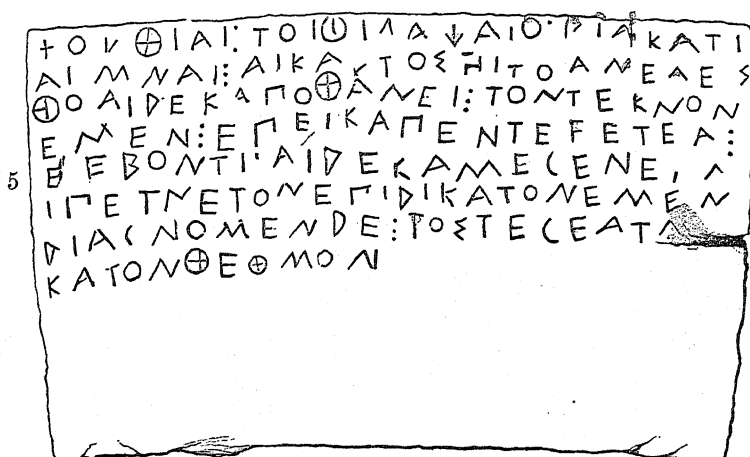 +ΟΥ⊕ΙΑΙ⋮ΤΟΙΦΙΛΑ↓ΑΙΟ⋮ΔΙΑΚΑΤΙ
ΑΙΜΝΑΙ⋮ΑΙΚΑΚΤΟΣΗΙΤΟΑΝΕΑΕΣ
⊕ΟΑΙΔΕΚΑΠΟ⊕ΑΝΕΙ⋮ΤΟΝΤΕΚΝΟΝ
ΕΜΕΝ⋮ΕΠΕΙΚΑΠΕΝΤΕϜΕΤΕΑ⋮
5 ΗΕΒΟΝΤΙ⋮ΑΙΔΕΚΑΜΕCΕΝΕ Λ
ΙΠΕΤΝΕΤΟΝΕΠΙΔΙΚΑΤΟΝΕΜΕΝ
ΔΙΑCΝΟΜΕΝΔΕ⋮ΤΟΣΤΕCΕΑΤΑ
ΚΑΤΟΝ⊕Ε⊕ΜΟΝ